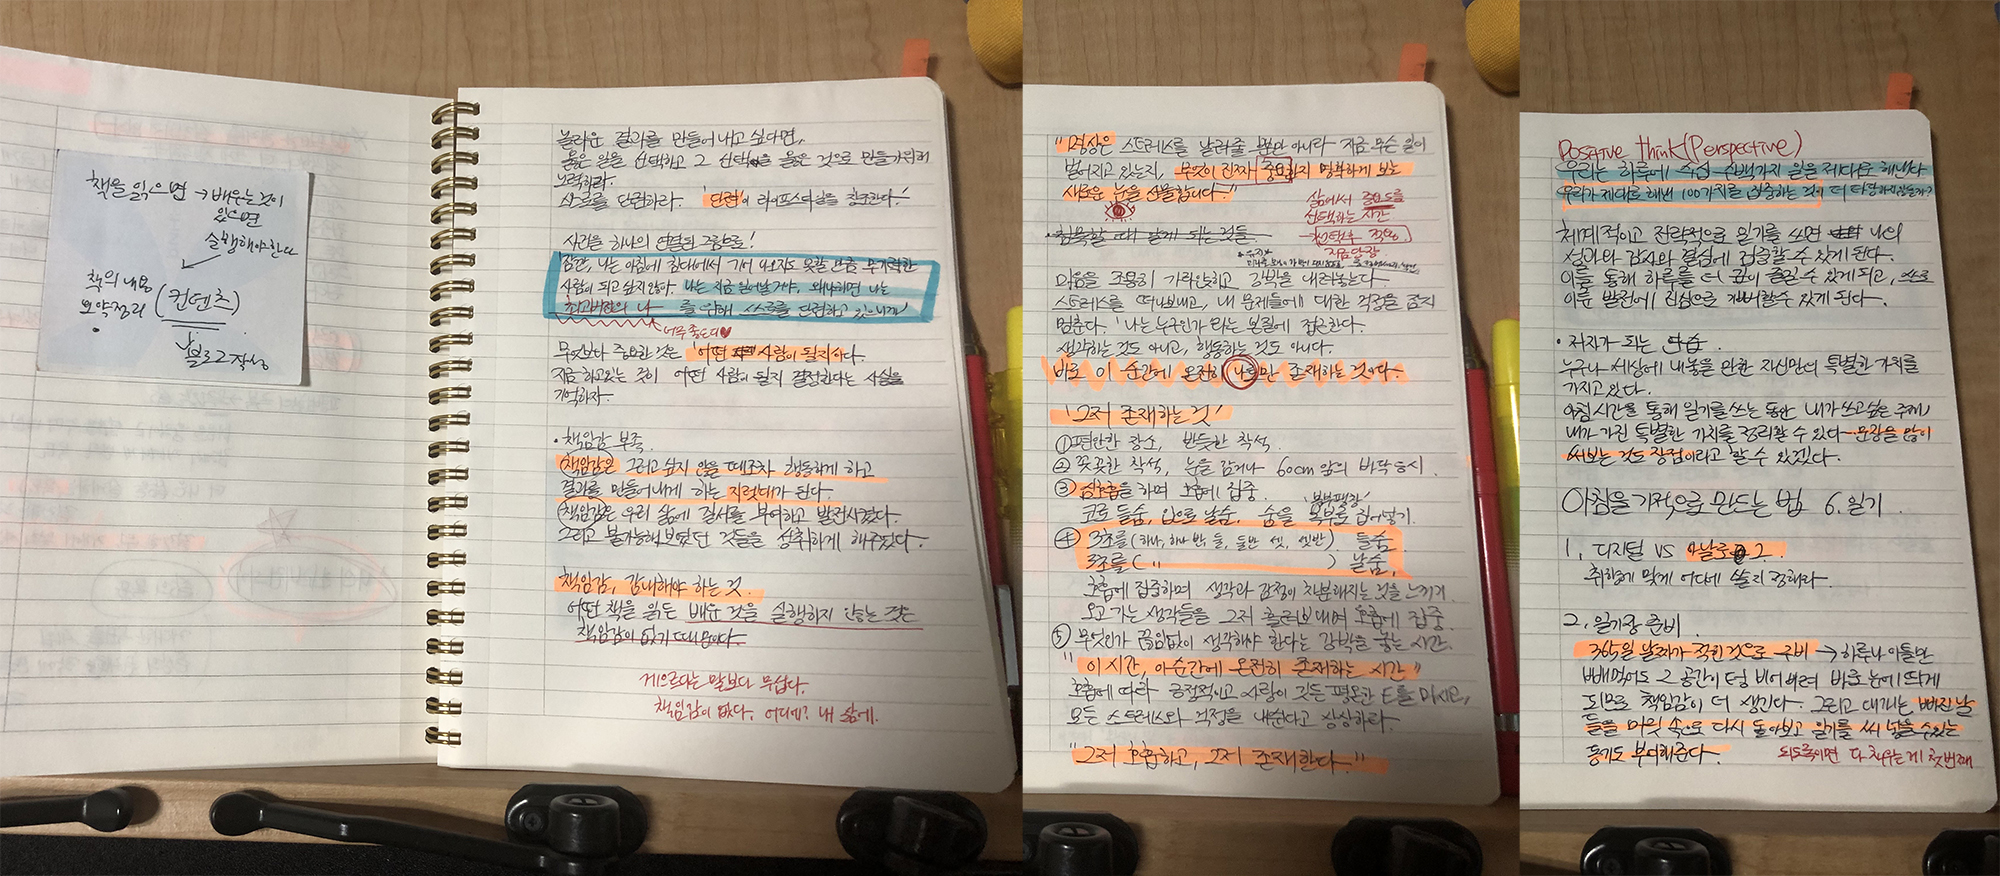 책을 읽으면 → 배우는 것이
있으면
실행해야한다
책의 내용
요약정리 (컨텐츠)
블로그 작성
놀라운 결과를 만들어 내고 싶다면,
옳은 일을 선택하고 그 선택을 옳은 것으로 만들기위해
노력하라.
사고를 단련하라. '단련'의 라이프스타일을 창조한다.
사건을 하나의 연결된 그림으로!
잠깐, 나는 아침에 침대에서 기어 나오지도 못할 만큼 무기력한
사람이 되고 싶지 않아. 나는 지금 일어날거야, 왜냐하면 나는
최고버전의 나 를 위해 스스로를 단련하고 있으니까
너무 좋드다♥
무엇보다 중요한 것은 '어떤 사람이 될지'이다.
지금 하고있는 것이 어떤 사람이 될지 결정한다는 사실을
기억하자.
· 책임감 부족
책임감은 그러고 싶지 않을 때조차 행동하게 하고
결과를 만들어내게 하는 지렛대가 된다.
책임감은 우리 삶에 질서를 부여하고 발전시켰다.
그리고 불가능해보였던 것들을 성취하게 해주었다.
책임감, 감내해야 하는 것
어떤 책을 읽든 배운 것을 실행하지 않는 것은
책임감이 없기 때문이다.
게으르다는 말보다 무섭다.
책임감이 없다. 어디에? 내 삶에.
"명상은 스트레스를 날려줄 뿐만 아니라 지금 무슨 일이
벌어지고 있는지, 무엇이 진짜 중요한지 명확하게 보는
새로운 눈을 선물합니다."
삶에서 중요도를
선택하는 시간
선택후 적용
지금당장
· 침묵할 때 알게 되는 것들.
마음을 조용히 가라앉히고 강박을 내려놓는다.
스트레스를 떠나보내고, 내 문제들에 대한 걱정을 잠시
멈춘다. '나는 누구인가'라는 본질에 접근한다.
생각하는 것도 아니고, 행동하는 것도 아니다.
바로 이 순간에 온전히 나만 존재하는 것이다.
'그저 존재하는 것'
① 편안한 장소, 반듯한 착석.
② 꼿꼿한 착석, 눈을 감거나 60cm 앞의 바닥 응시.
③ 심호흡을 하며 호흡에 집중.
'복부팽창'
코로 들숨, 입으로 날숨, 숨을 복부로 집어넣기.
④ 3초를 (하나, 하나 반, 둘, 둘반 셋, 셋반) 들숨
3초를 ( " ) 날숨,
호흡에 집중하며 생각과 감정이 차분해지는 것을 느끼기
오고 가는 생각들을 그저 흘려보내며 호흡에 집중.
⑤ 무엇인가 끊임없이 생각해야 한다는 강박을 놓는 시간.
"이 시간, 이순간에 온전히 존재하는 시간"
호흡에 따라 긍정적이고 사랑이 깃든 평온한 E를 마시고,
모든 스트레스와 걱정을 내쉰다고 상상하라.
"그저 호흡하고, 그저 존재한다."
Positive think (Perspective)
우리는 하루에 수십 수백가지 일을 제대로 해낸다
우리가 제대로 해낸 100가지를 집중하는 것이 더 타당하지않을까?
체계적이고 전략적으로 일기를 쓰면 나의
성과와 감사와 결심에 집중할 수 있게 된다.
이를 통해 하루를 더 깊이 즐길 수 있게 되고, 스스로
이룬 발전에 진심으로 기뻐할수 있게 된다.
· 저자가 되는 연습
누구나 세상에 내놓을 만한 자신만의 특별한 가치를
가지고 있다.
아침 시간을 통해 일기를 쓰는 동안 내가 쓰고싶은 주제,
내가 가진 특별한 가치를 정리할 수 있다. 문장을 많이
써보는 것도 장점이라고 할 수 있겠다.
아침을 기적으로 만드는 법 6. 일기
1. 디지털 vs 아날로그.
취향에 맞게 어디에 쓸지 정해라.
2. 일기장 준비.
365일 날짜가 적힌것으로 구비 → 하루나 이틀만
빼먹어도 그 공간이 텅 비어버려 바로 눈에 띄게
되므로 책임감이 더 생긴다. 그리고 대개는 빠진 날
들을 머릿 속으로 다시 돌아보고 일기를 써 넣을 수있는
동기도 부여해준다.
되도록이면 다 채우는게 첫번째